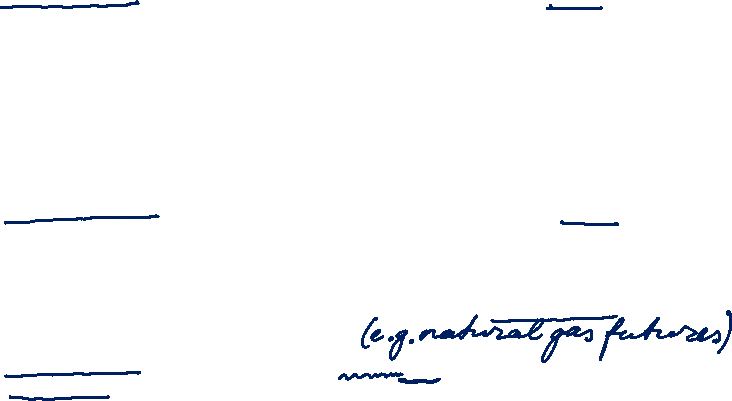 (e.g. natural gas futures)